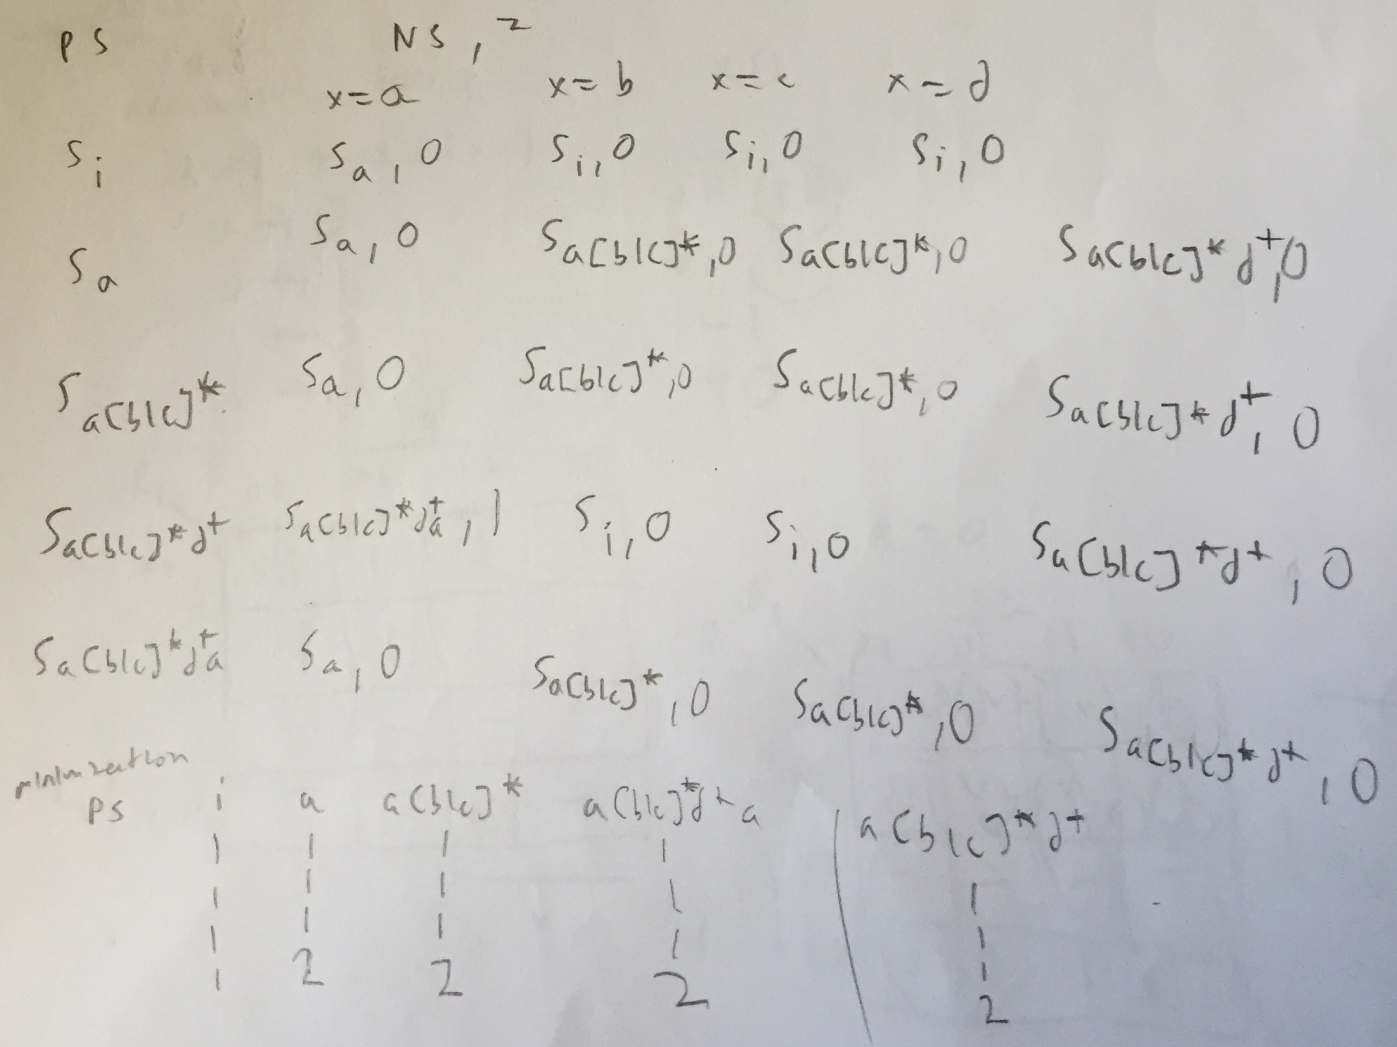 PS NS, z
x=a x=b x=c x=d
Si Sa, 0 Si, 0 Si, 0 Si, 0
Sa Sa, 0 Sa[b|c]*, 0 Sa[b|c]*, 0 Sa[b|c]*d+, 0
Sa[b|c]* Sa, 0 Sa[b|c]*, 0 Sa[b|c]*, 0 Sa[b|c]*d+, 0
Sa[b|c]*d+ Sa[b|c]*d+a, 1 Si, 0 Si, 0 Sa[b|c]*d+, 0
Sa[b|c]*d+a Sa, 0 Sa[b|c]*, 0 Sa[b|c]*, 0 Sa[b|c]*d+, 0
minimization
PS i a a[b|c]* a[b|c]*d+a a[b|c]*d+
1 1 1 1 1
1 1 1 1 1
1 1 1 1 1
1 2 2 2 2